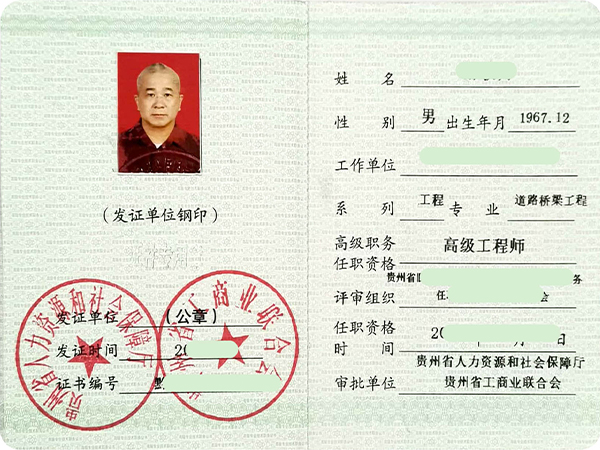 （发证单位钢印）
贵州省人力资源和社会保障厅
工商业联合会
发证单位 （公章）
发证时间 20
证书编号
姓 名
性 别 男 出生年月 1967.12
工作单位
系 列 工程 专 业 道路桥梁工程
高级职务
任职资格 高级工程师
贵州省 务
评审组织 任 会
任职资格
时 间 20 月 日
贵州省人力资源和社会保障厅
审批单位 贵州省工商业联合会